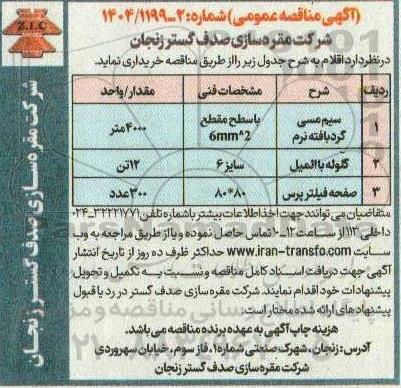 (آگهی مناقصه عمومی) شماره: ۲-۱۴۰۴/۱۱۹۹
شرکت مقره سازی صدف گستر زنجان
در نظر دارد اقلام به شرح جدول زیر را از طریق مناقصه خریداری نماید.
ردیف شرح مشخصات فنی مقدار/واحد
۱ سیم مسی گرد بافته نرم با سطح مقطع 6mm^2 ۴۰۰۰ متر
۲ گلوله باالمیل سایز ۶ ۱۲تن
۳ صفحه فیلتر پرس ۸۰*۸۰ ۳۰۰ عدد
متقاضیان می توانند جهت اخذ اطلاعات بیشتر با شماره تلفن ۳۲۲۲۱۷۷۱-۰۲۴
داخلی ۱۱۳ از ساعت ۱۲-۱۰ تماس حاصل نموده و یا از طریق مراجعه به وب
سایت www.iran-transfo.com حداکثر ظرف ده روز از تاریخ انتشار
آگهی جهت دریافت اسناد کامل مناقصه و نسبت به تکمیل و تحویل
پیشنهادات خود اقدام نمایند. شرکت مقره سازی صدف گستر در رد یا قبول
پیشنهاد های ارائه شده مختار است.
هزینه چاپ آگهی به عهده برنده مناقصه می باشد.
آدرس: زنجان، شهرک صنعتی شماره۱، فاز سوم، خیابان سهروردی
شرکت مقره سازی صدف گستر زنجان
Z.I.C
شرکت مقره سازی صدف گستر زنجان